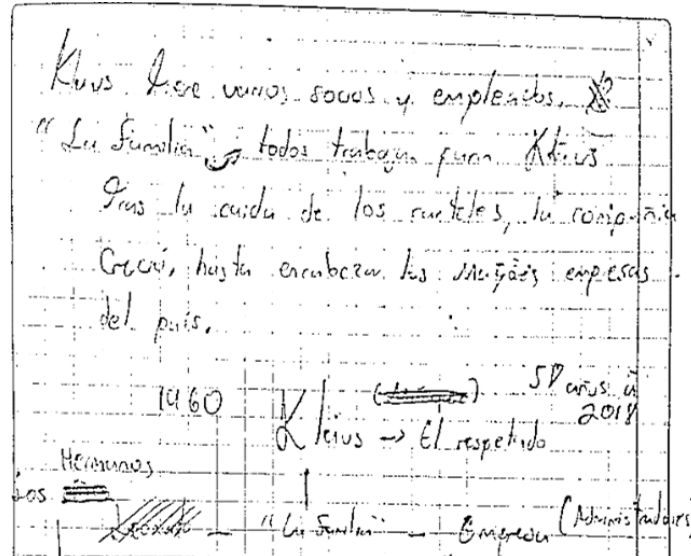 Klaus tiene varios socios y empleados.
"La Familia", todos trabajan para Klaus
Tras la caida de los carteles, la compañia
Creció, hasta encabezar las mayores empresas
del país.
1960
58 años a
2018
Klaus → El respetado
Hermanos
Los
"La Familia" — Empresa (Administradores)